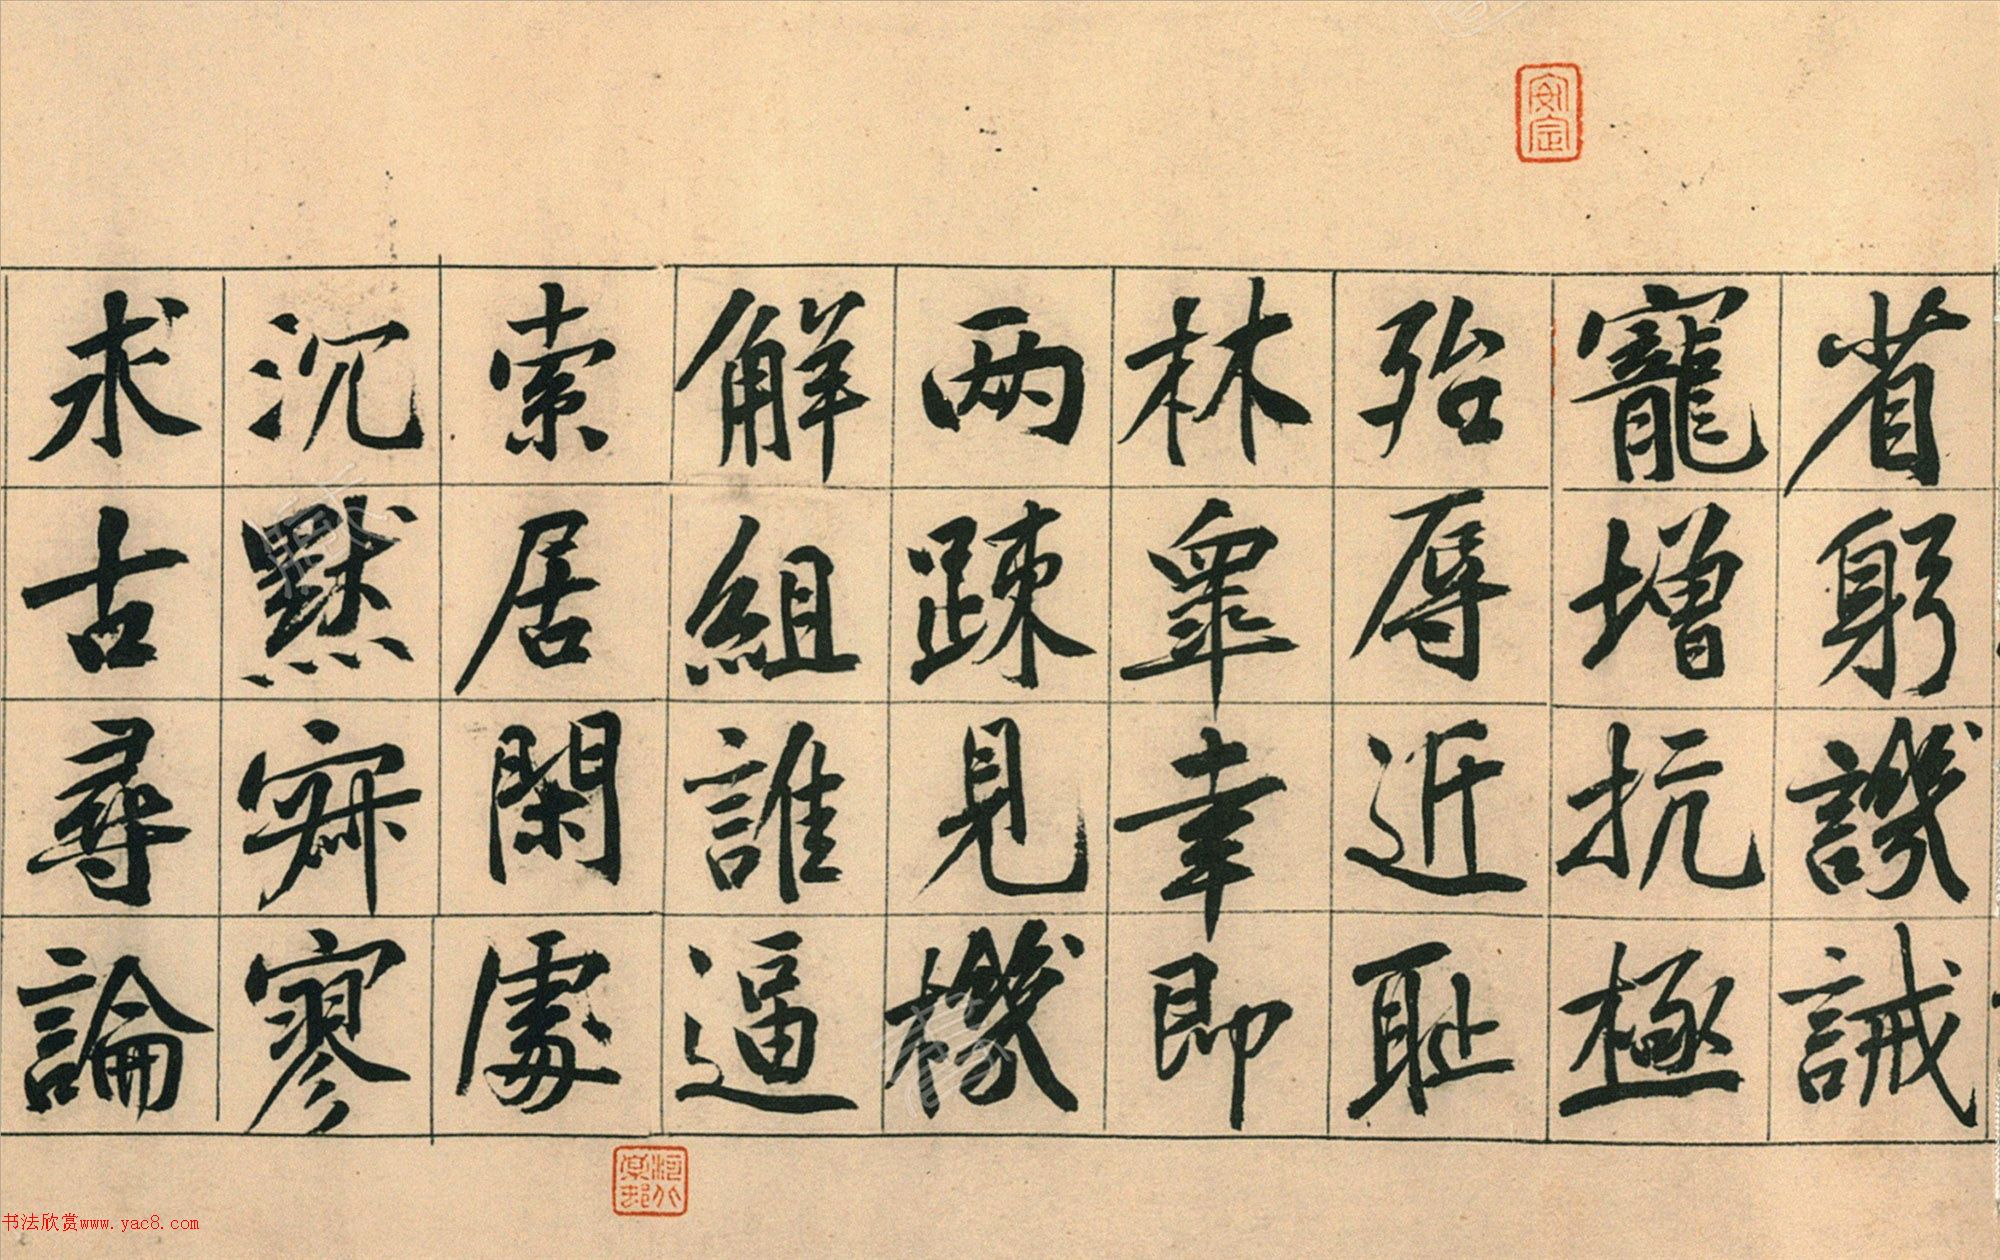 省躬譏誡
寵增抗極
殆辱近耻
林睾幸即
两踈見機
解組誰逼
索居閑處
沉默寂寥
求古尋論
安定
书法欣赏www.yac8.com